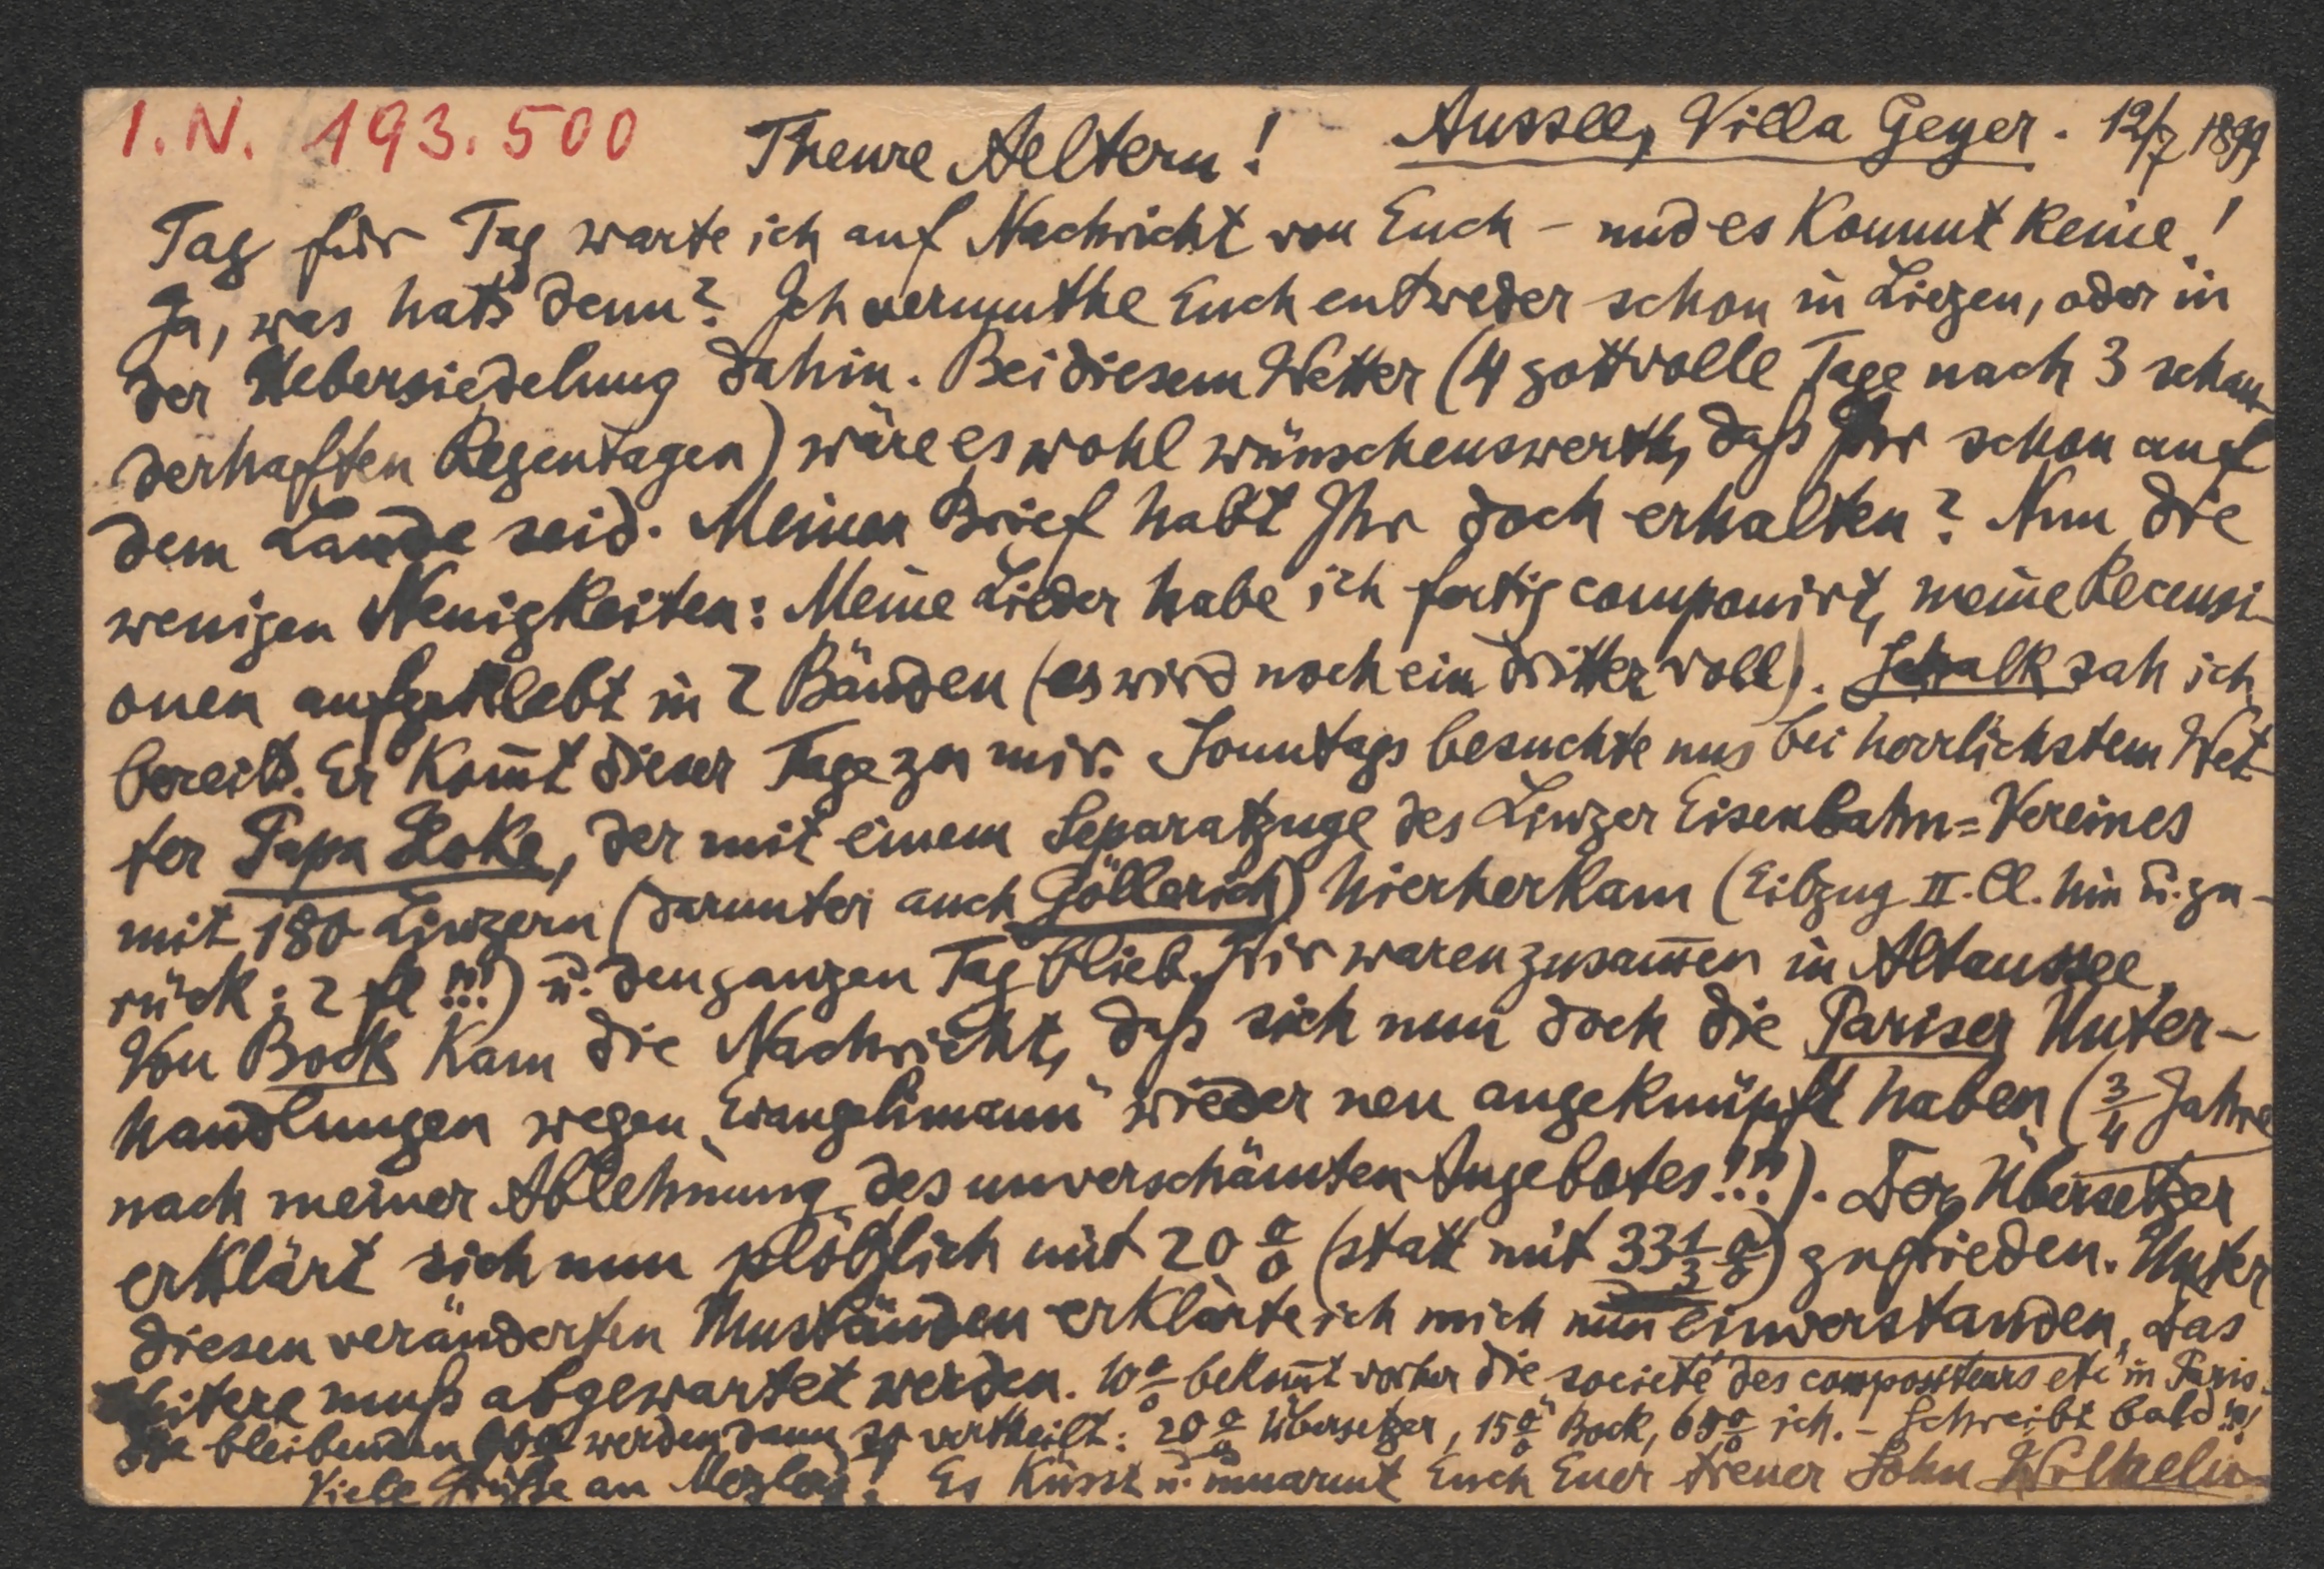 I.N. 193.500
Aussee, Villa Geyer. 12/7 1899
Theure Aeltern!
Tag für Tag warte ich auf Nachricht von Euch – und es kommt keine!
Ja, was hats denn? Ich vermuthe Euch entweder schon in Liezen, oder in
der Uebersiedelung dahin. Bei diesem Wetter (4 gottvolle Tage nach 3 schau-
derhaften Regentagen) wäre es wohl wünschenswerth, daß Ihr schon auf
dem Lande seid. Meinen Brief habt Ihr doch erhalten? Nun die
wenigen Neuigkeiten: Meine Lieder habe ich fertig componirt, meine Recensi-
onen aufgeklebt in 2 Bänden (es wird noch ein dritter voll). Schalk sah ich
bereits. Er kom̅t dieser Tage zu mir. Sonntags besuchte uns bei herrlichstem Wet-
ter Papa Loke, der mit einem Separatzuge des Linzer Eisenbahn=Vereines
mit 180 Linzern (darunter auch Göllerich) hierherkam (Eilzug II. Cl. hin u. zu-
rück: 2 fl!!!) u. den ganzen Tag blieb. Wir waren zusam̅en in Altaussee.
Von Bock kam die Nachricht, daß sich nun doch die Pariser Unter-
handlungen wegen „Evangelimann" wieder neu angeknüpft haben (3/4 Jahre
nach meiner Ablehnung des unverschämten Angebotes!!!). Der Übersetzer
erklärt sich nun plötzlich mit 20 % (statt mit 33 1/3 %) zufrieden. Unter
diesen veränderten Umständen erklärte ich mich nun einverstanden, das
Weitere muß abgewartet werden. 10 % bekom̅t vorher die „societé des compositeurs etc" in Paris.
Die bleibenden werden dann so vertheilt: 20 % Übersetzer, 15 % Bock, 65 % ich. – Schreibt bald!!!
Viele Grüße an! Es küsst u. umarmt Euch Euer treuer Sohn Wilhelm